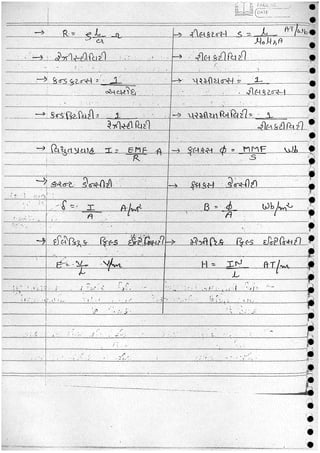 PAGE NO.
DATE
→ R = ρ l/a Ω → રીલકટન્સ S = l/μ₀μᵣA AT/wb
→ રેઝીસ્ટીવિટી → રીલકટીવિટી
→ કન્ડકટન્સ = 1/અવરોધ → પરમીયન્સ = 1/રીલકટન્સ
→ કન્ડકટિવિટી = 1/રેઝીસ્ટીવિટી → પરમીયાબિલિવિટી = 1/રીલકટીવિટી
→ વિધુતપ્રવાહ I = EMF/R A → ફલકસ Φ = MMF/S Wb
→ કરન્ટ ડેન્સીટી → ફલકસ ડેન્સીટી
δ = I/A A/m² B = Φ/A Wb/m²
→ ઈલેક્ટ્રિક ફિલ્ડ ઈન્ટેન્સિટી → મેગ્નેટિક ફિલ્ડ ઈન્ટેન્સિટી
E = V/L V/m H = IN/L AT/m